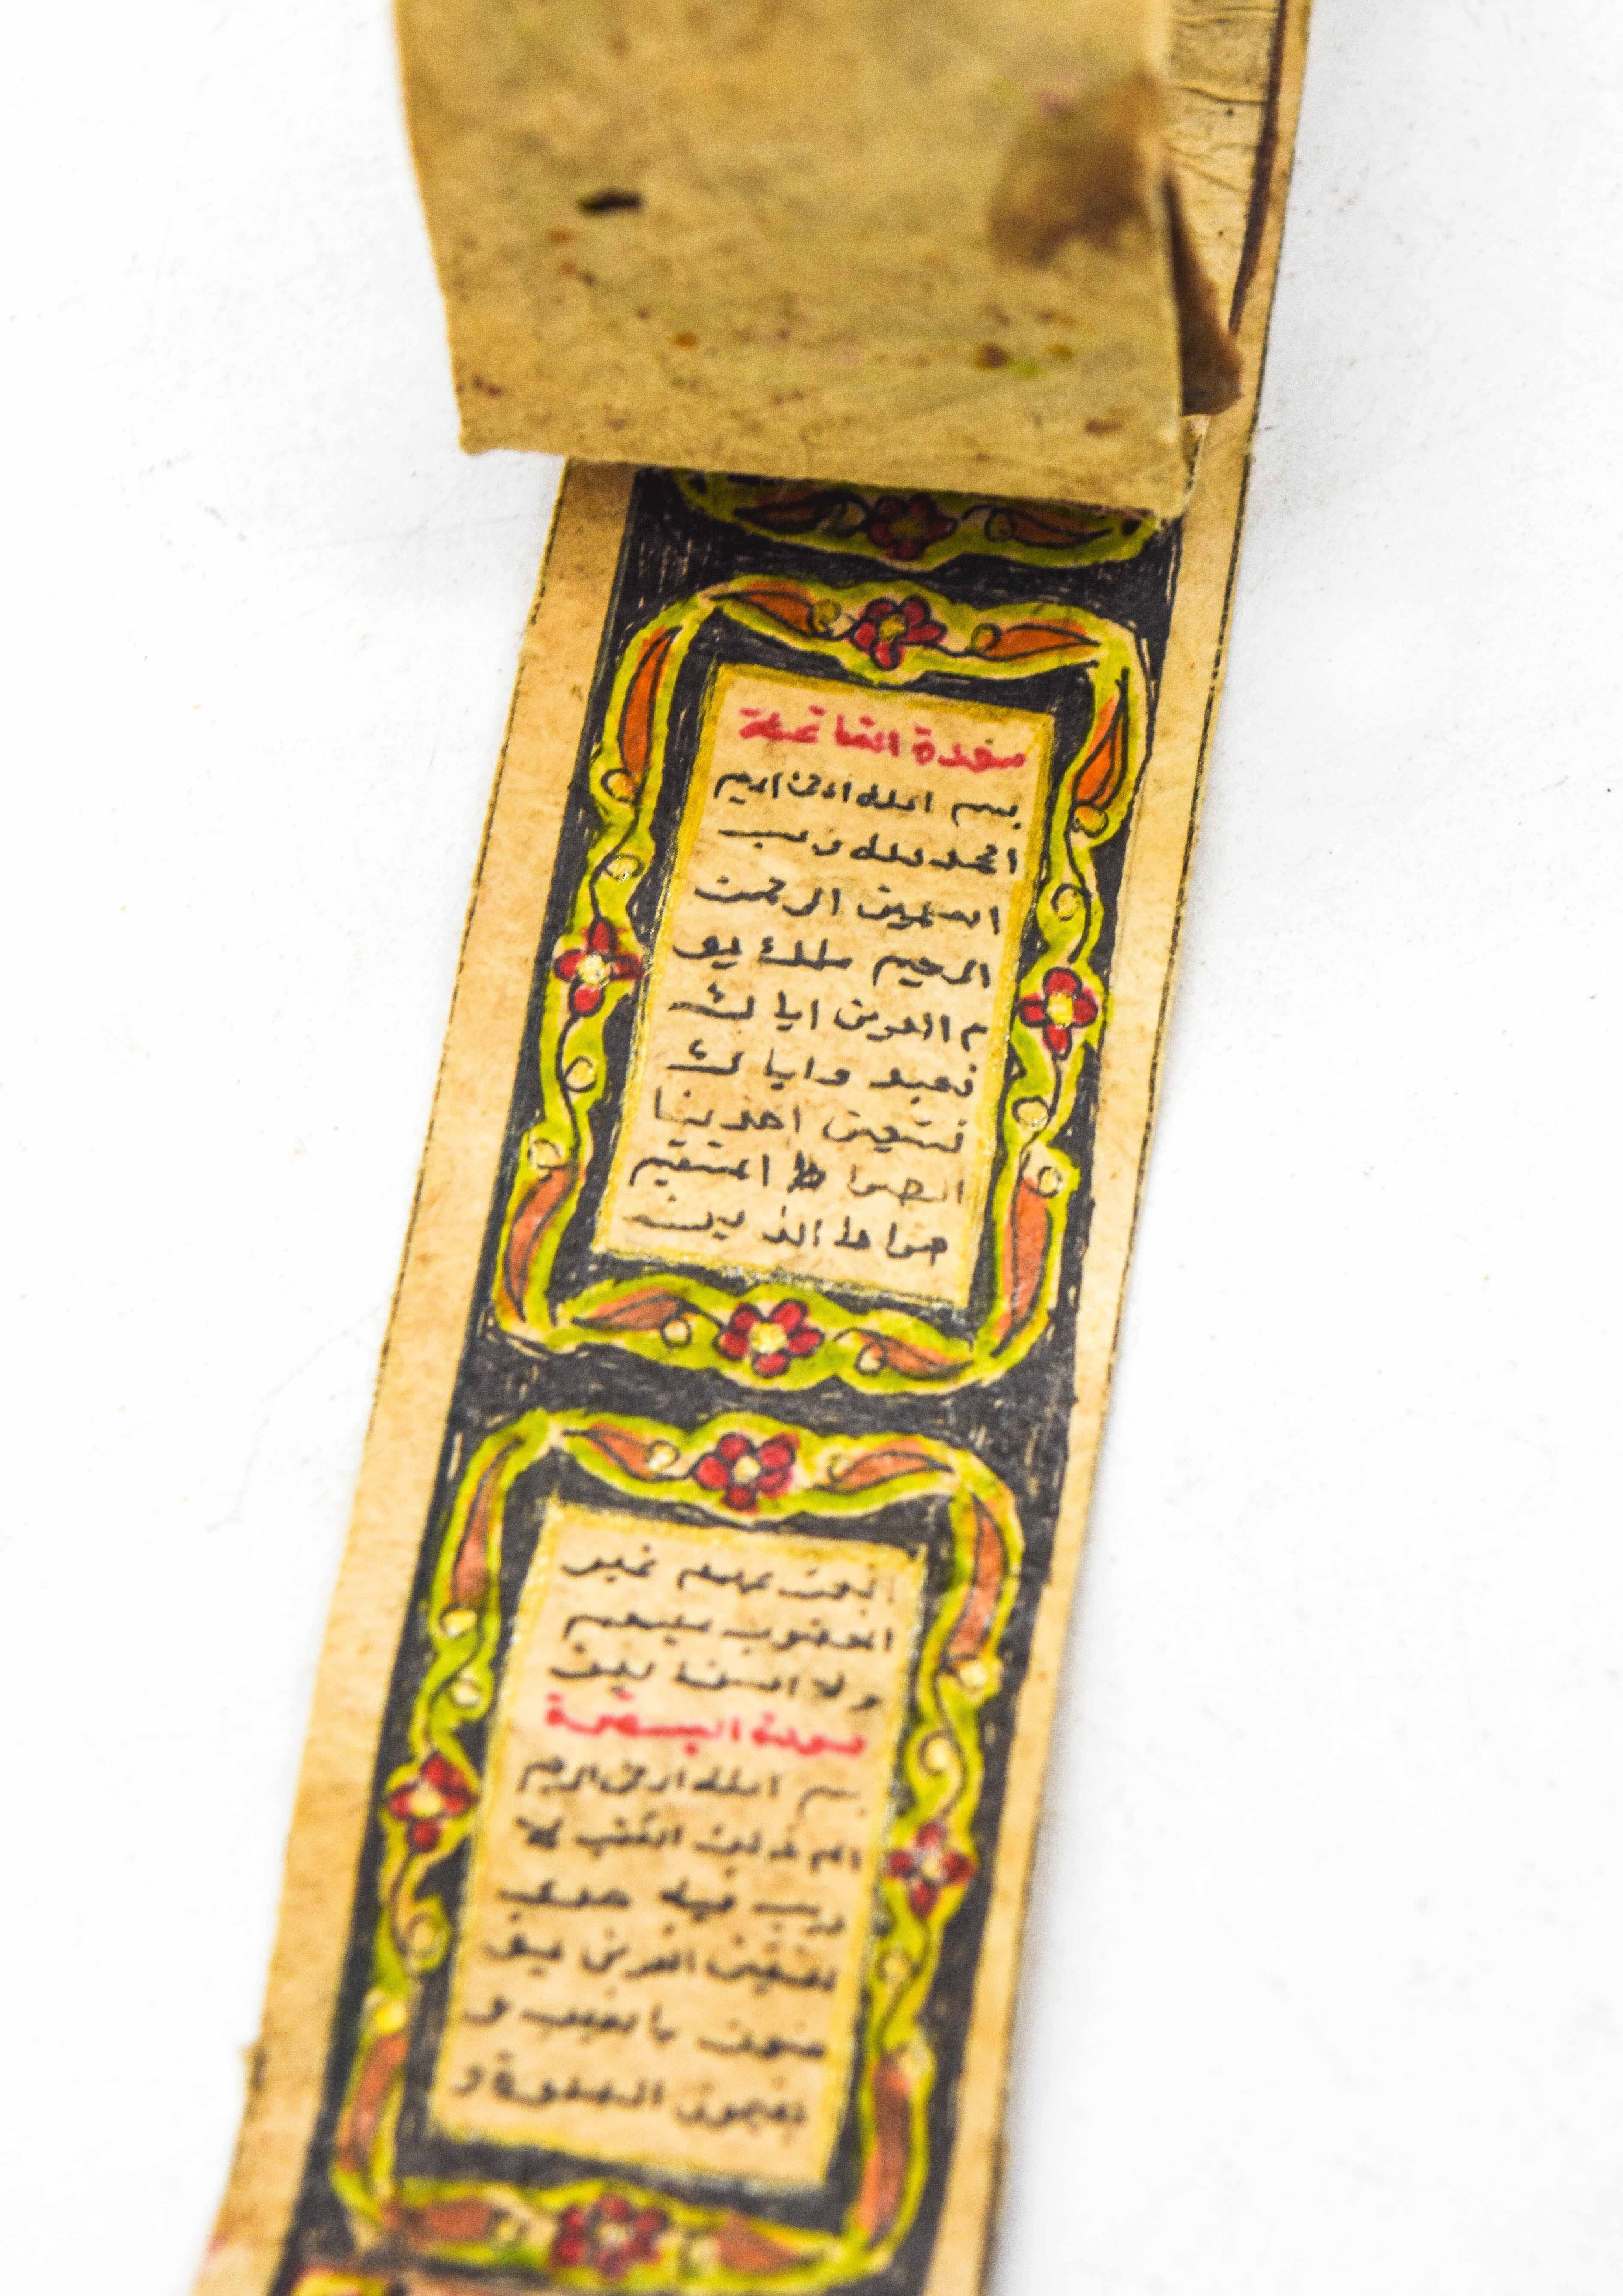 سورة الفاتحة
بسم الله الرحمن الرحيم
الحمد لله رب
العلمين الرحمن
الرحيم ملك يو
م الدين اياك
نعبد واياك
نستعين اهدينا
الصراط المستقيم
صراط الذين
انعمت عليهم غير
المغضوب عليهم
ولا الضالين
سورة البقرة
بسم الله الرحمن الرحيم
الم ذلك الكتب لا
ريب فيه هدى
للمتقين الذين يؤ
منون بالغيب و
يقيمون الصلوة و